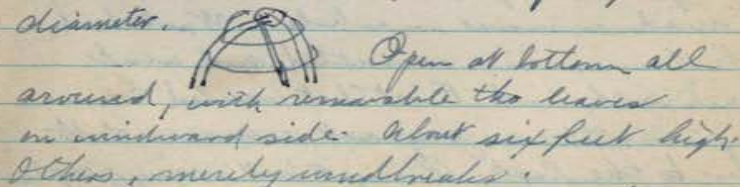 diameter.
Open at bottom all
around, with removable tho leaves
on windward side. About six feet high.
Others, merely windbreaks.